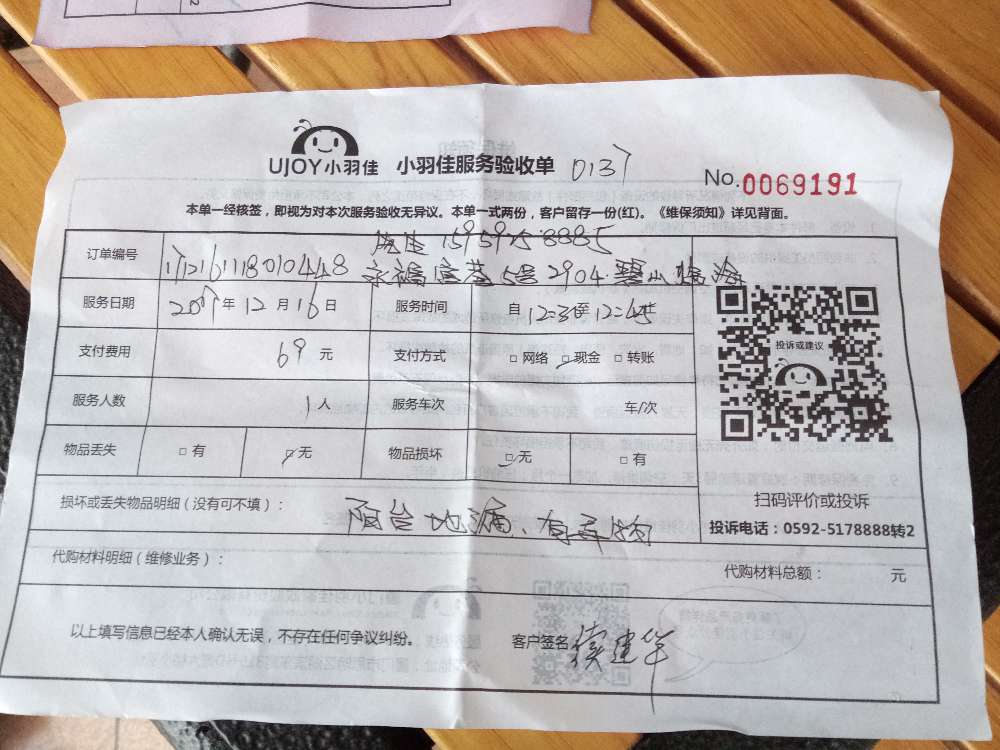 UJOY小羽佳 小羽佳服务验收单 0137
No.0069191
本单一经核签，即视为对本次服务验收无异议。本单一式两份，客户留存一份(红)。《维保须知》详见背面。
订单编号
服务日期 年 12 月 16 日 服务时间 自 12:3 至 12:45
支付费用 69 元 支付方式 □ 网络 □ 现金 □ 转账
投诉或建议
服务人数 1 人 服务车次 车/次
物品丢失 □ 有 □ 无 物品损坏 □ 无 □ 有
扫码评价或投诉
损坏或丢失物品明细（没有可不填）： 阳台地漏、有异物
投诉电话：0592-5178888转2
代购材料明细（维修业务）： 代购材料总额： 元
以上填写信息已经本人确认无误，不存在任何争议纠纷。 客户签名 建华